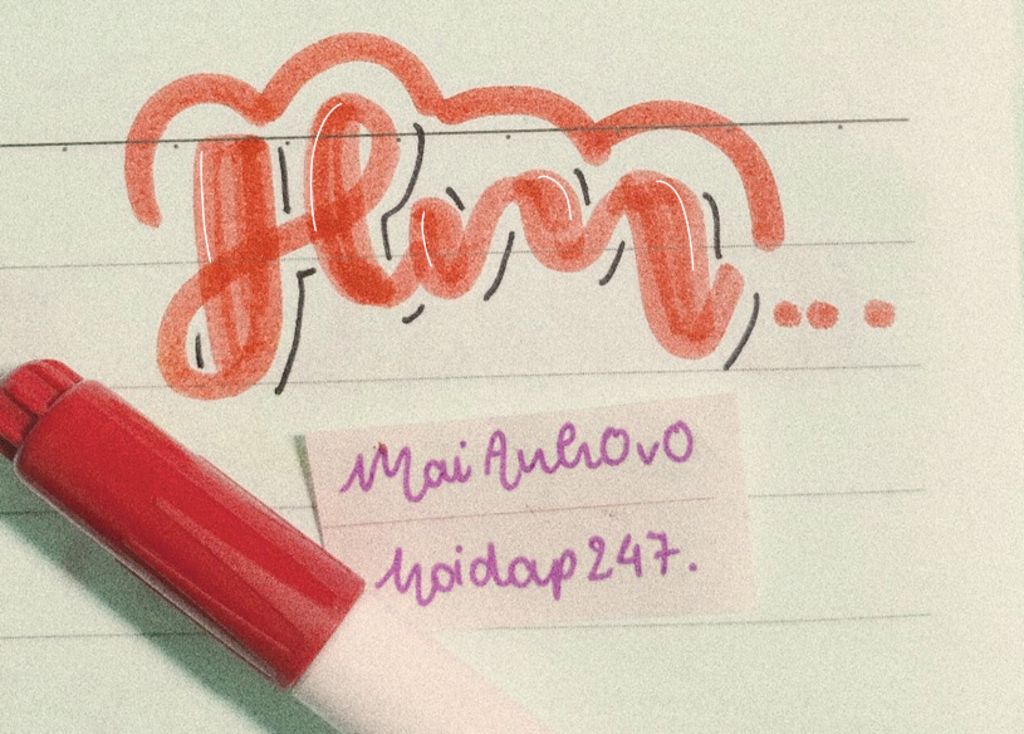 Hmm...
MaiAnhOvO
hoidap247.